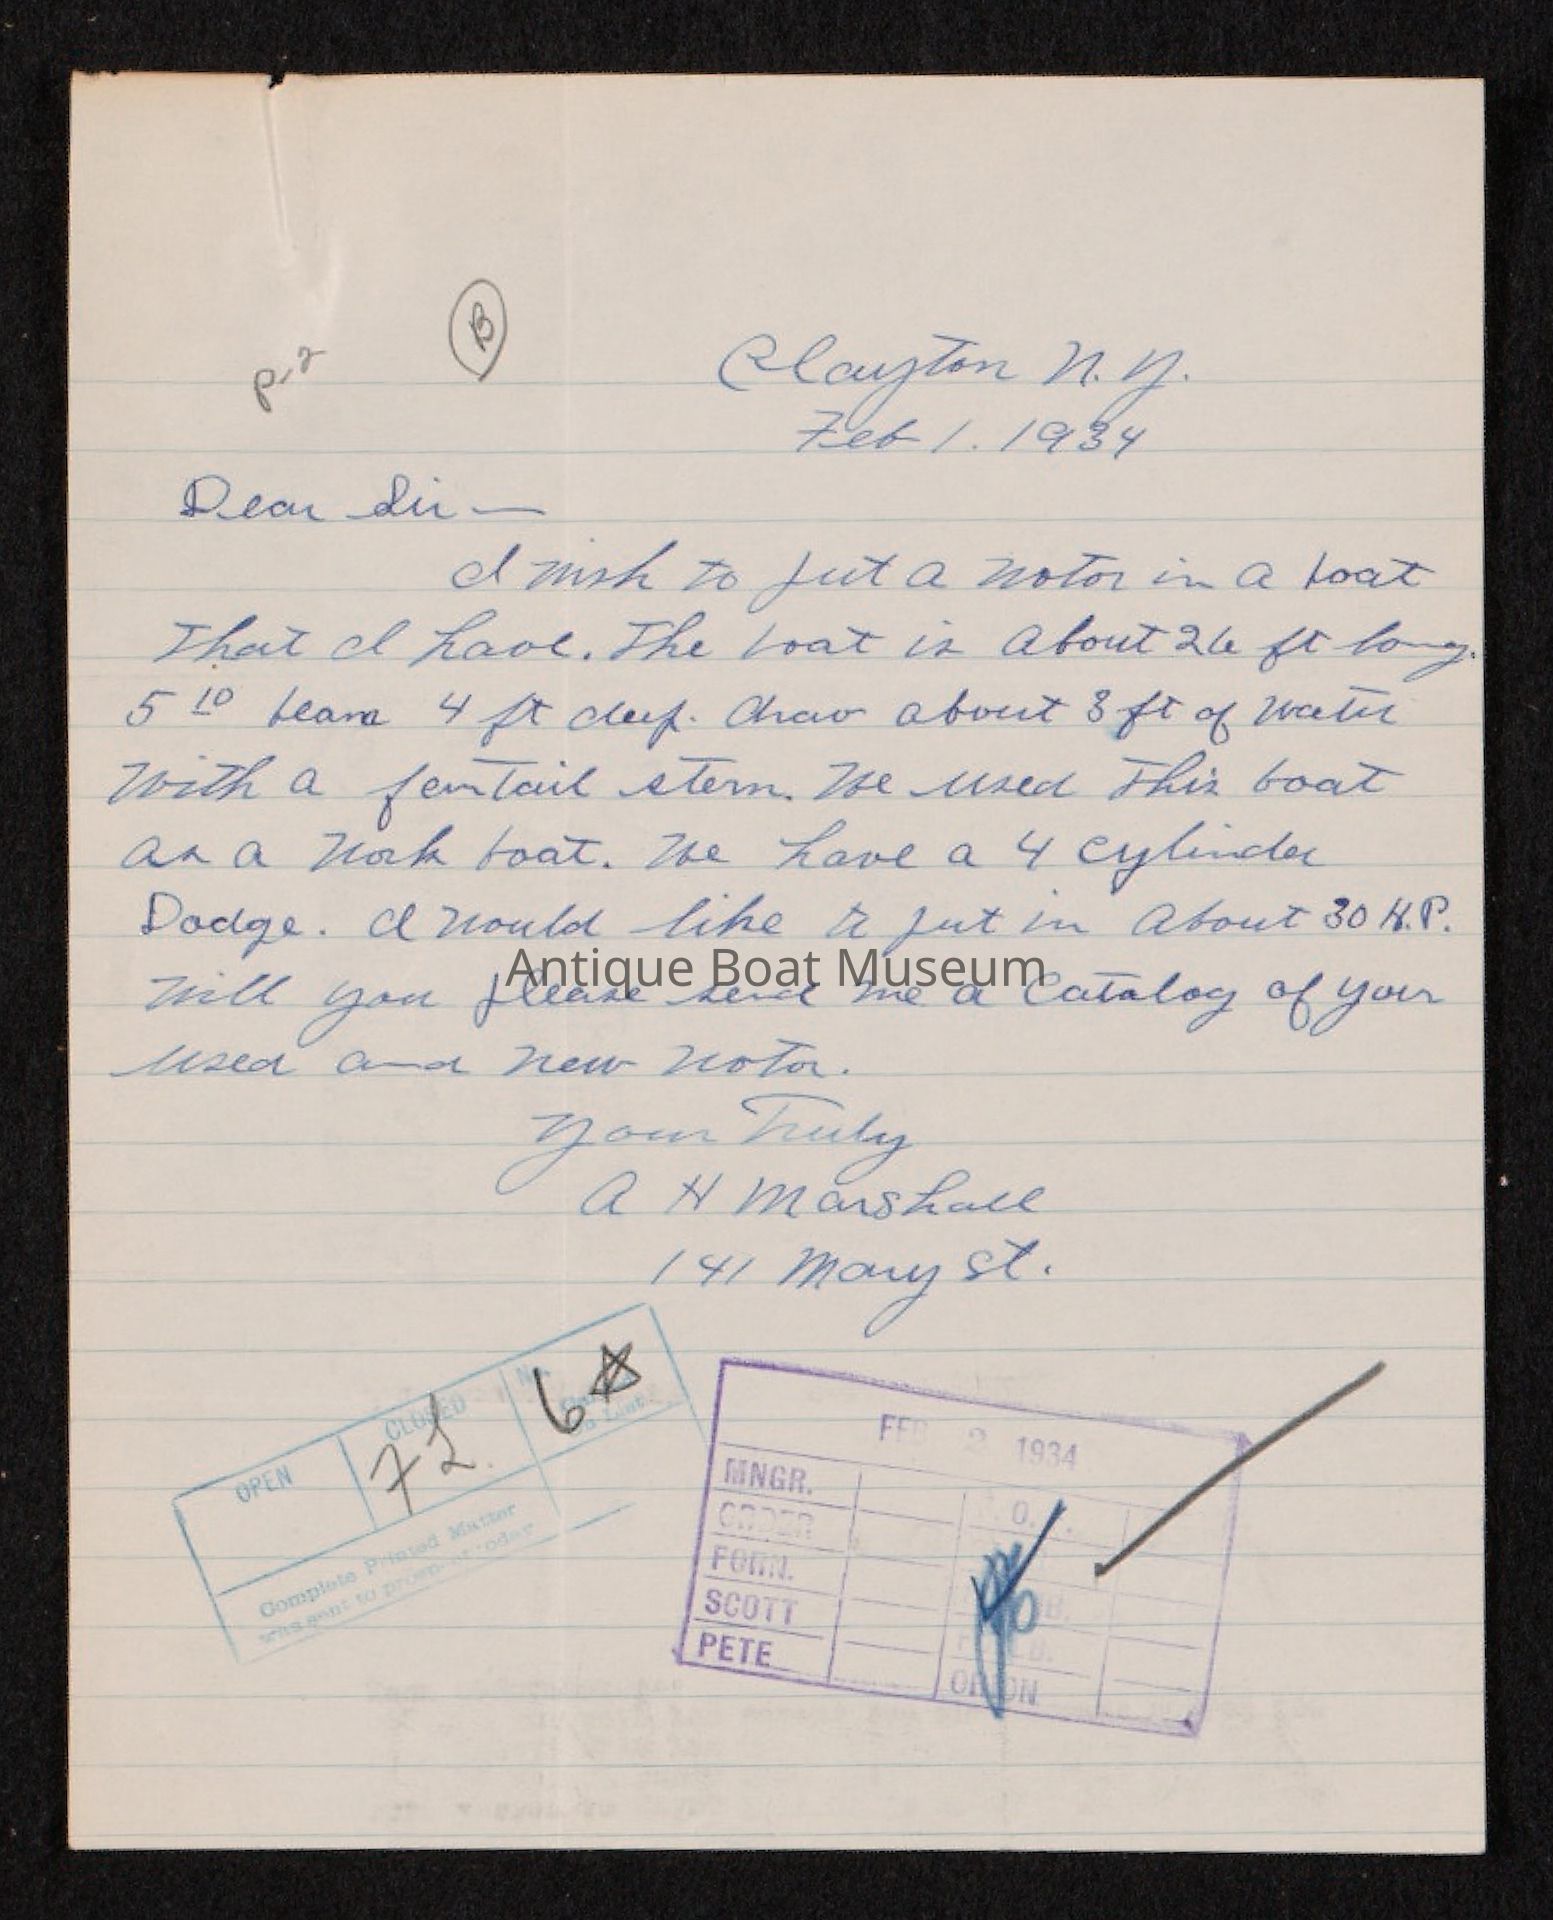 B
p-2
Clayton N.Y.
Feb 1. 1934
Dear Sir —
I wish to put a motor in a boat
that I have. The boat is about 26 ft long.
5 10 beam 4 ft deep. draw about 3 ft of water
with a fantail stern. We used this boat
as a work boat. We have a 4 cylinder
Dodge. I would like to put in about 30 H.P.
Antique Boat Museum
Will you please send me a catalog of your
used and new motor.
Your Truly
A H Marshall
141 Mary St.
OPEN
CLOSED
6
Complete Printed Matter
was sent to today
FEB 2 1934
MNGR.
ORDER
FORN.
SCOTT
PETE